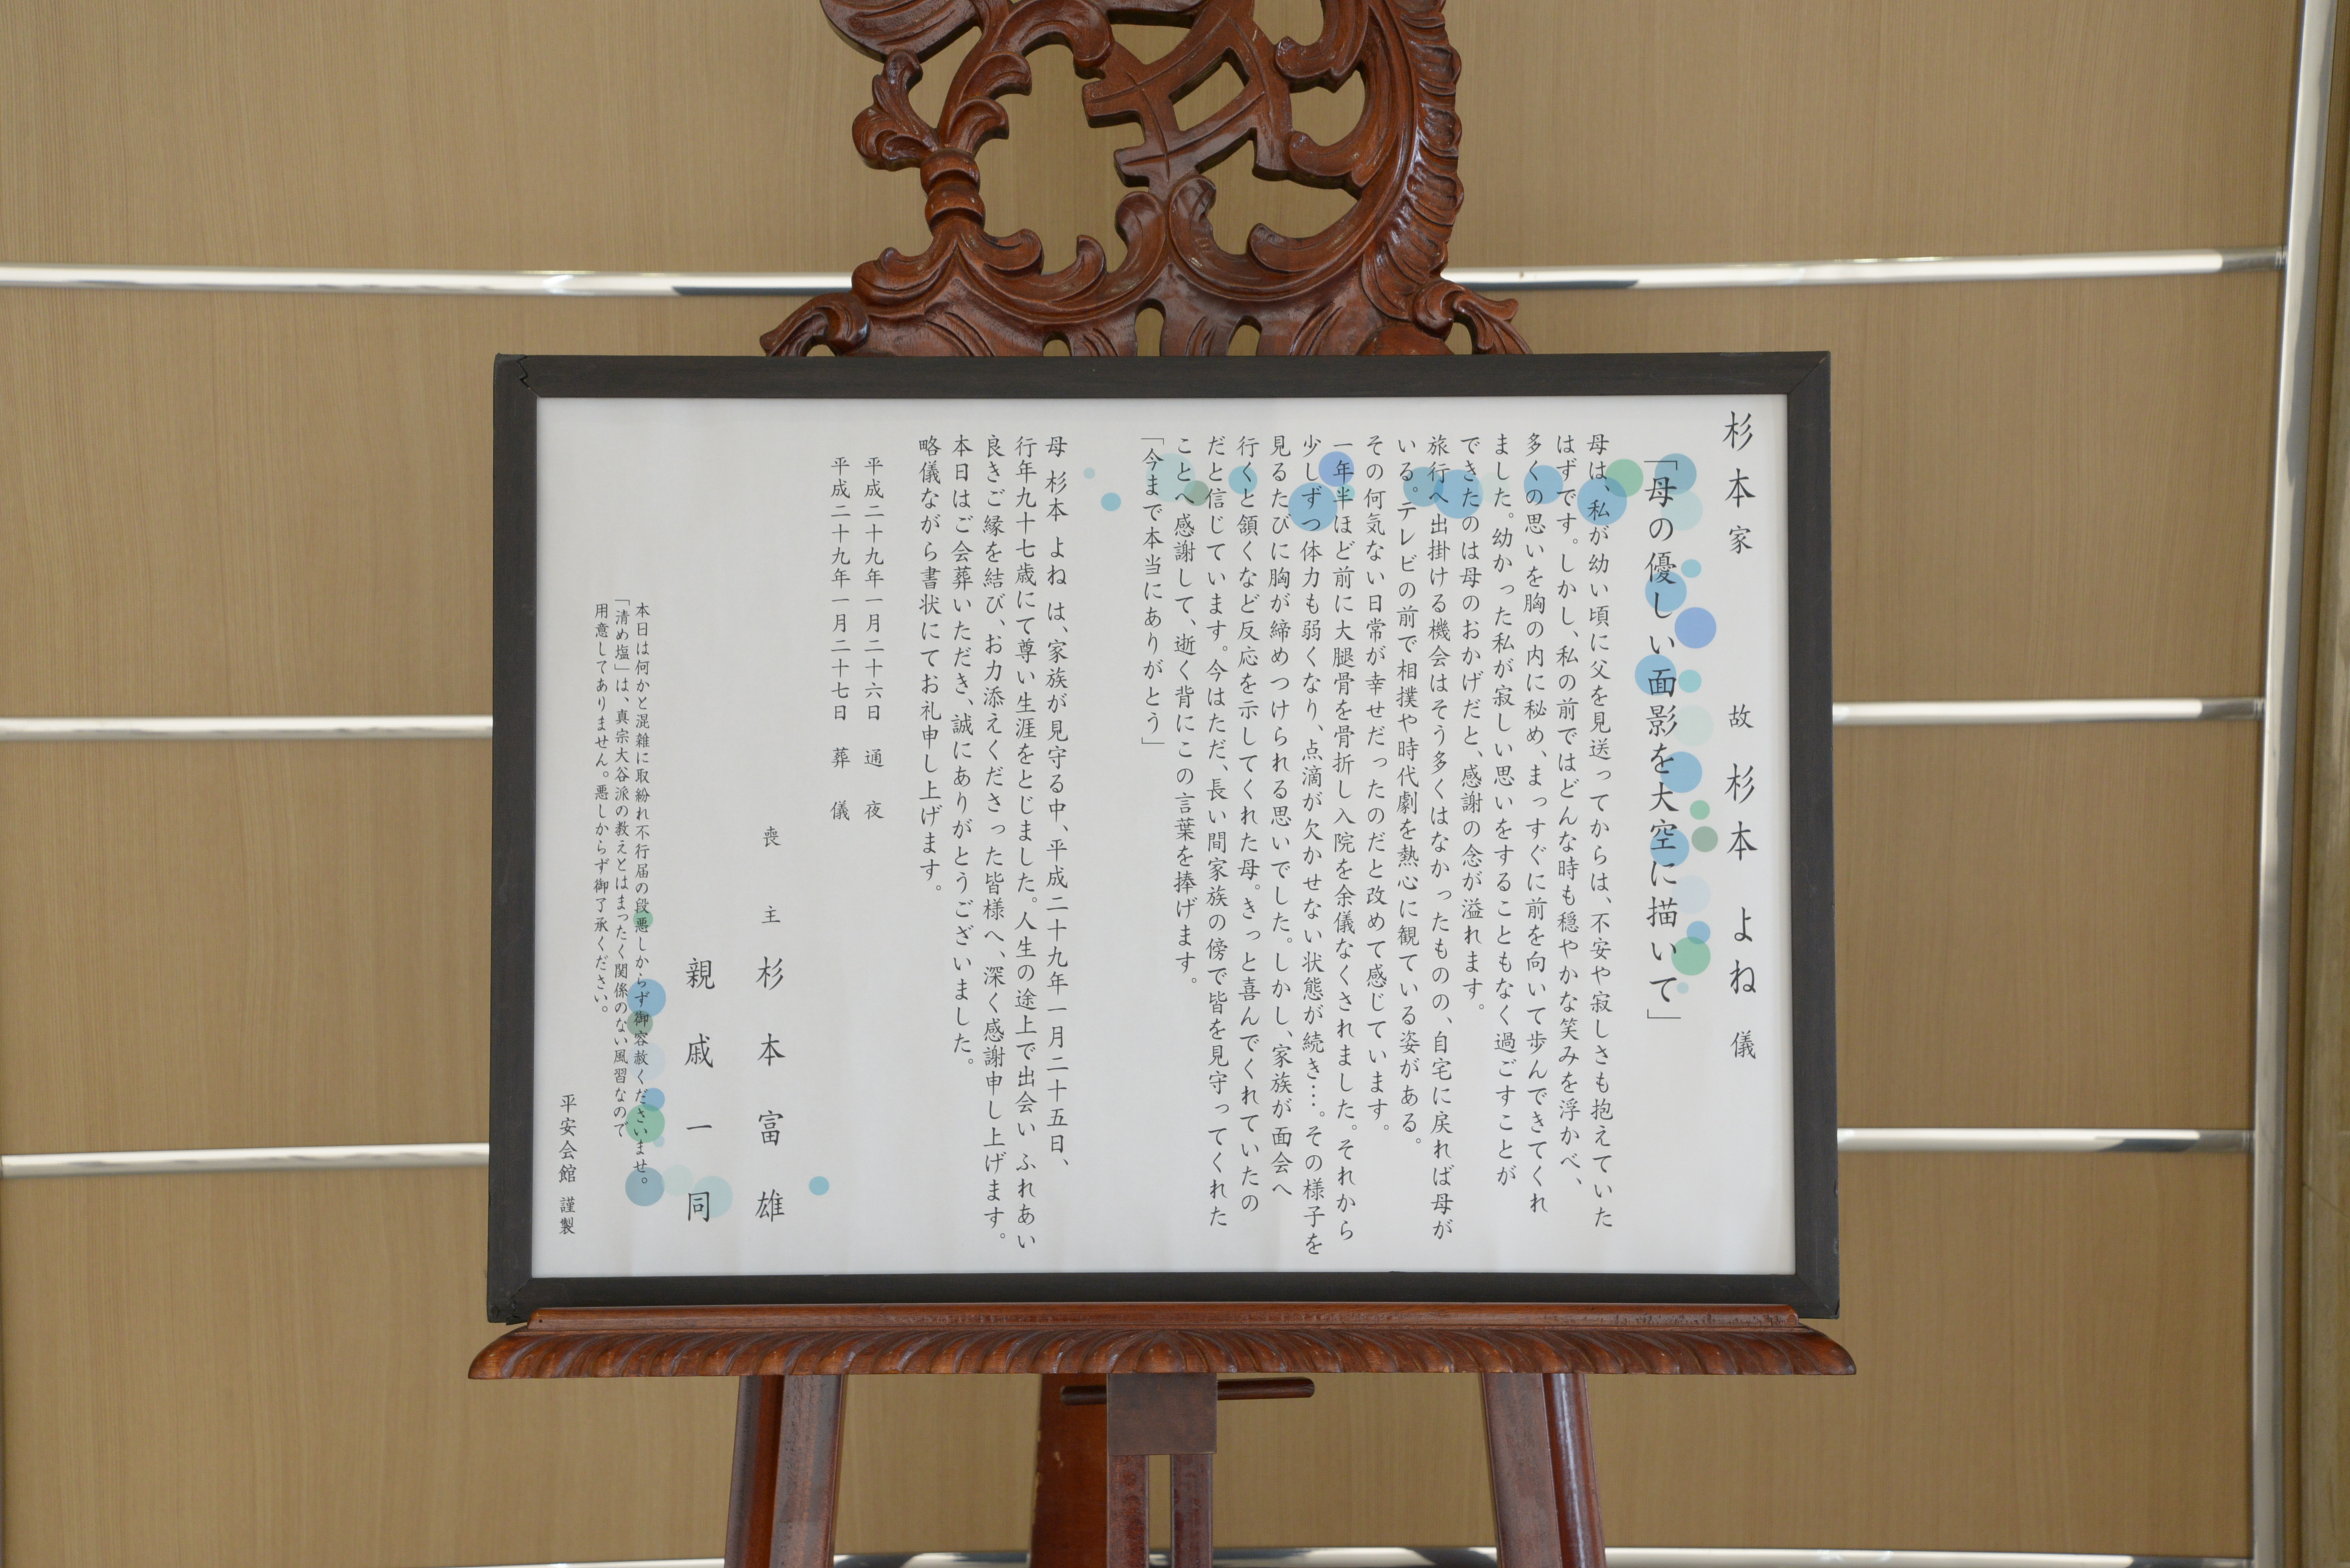 杉本家　故 杉本 よね 儀
「母の優しい面影を大空に描いて」
母は、私が幼い頃に父を見送ってからは、不安や寂しさも抱えていた
はずです。しかし、私の前ではどんな時も穏やかな笑みを浮かべ、
多くの思いを胸の内に秘め、まっすぐに前を向いて歩んできてくれ
ました。幼かった私が寂しい思いをすることもなく過ごすことが
できたのは母のおかげだと、感謝の念が溢れます。
旅行へ出掛ける機会はそう多くはなかったものの、自宅に戻れば母が
いる。テレビの前で相撲や時代劇を熱心に観ている姿がある。
その何気ない日常が幸せだったのだと改めて感じています。
一年半ほど前に大腿骨を骨折し入院を余儀なくされました。それから
少しずつ体力も弱くなり、点滴が欠かせない状態が続き…。その様子を
見るたびに胸が締めつけられる思いでした。しかし、家族が面会へ
行くと頷くなど反応を示してくれた母。きっと喜んでくれていたの
だと信じています。今はただ、長い間家族の傍で皆を見守ってくれた
ことへ感謝して、逝く背にこの言葉を捧げます。
「今まで本当にありがとう」
母 杉本 よね は、家族が見守る中、平成二十九年一月二十五日、
行年九十七歳にて尊い生涯をとじました。人生の途上で出会い ふれあい
良きご縁を結び、お力添えくださった皆様へ、深く感謝申し上げます。
本日はご会葬いただき、誠にありがとうございました。
略儀ながら書状にてお礼申し上げます。
平成二十九年一月二十六日 通夜
平成二十九年一月二十七日 葬儀
喪主 杉本富雄
親戚一同
本日は何かと混雑に取紛れ不行届の段悪しからず御容赦くださいませ。
「清め塩」は、真宗大谷派の教えとはまったく関係のない風習なので
用意してありません。悪しからず御了承ください。
平安会館 謹製